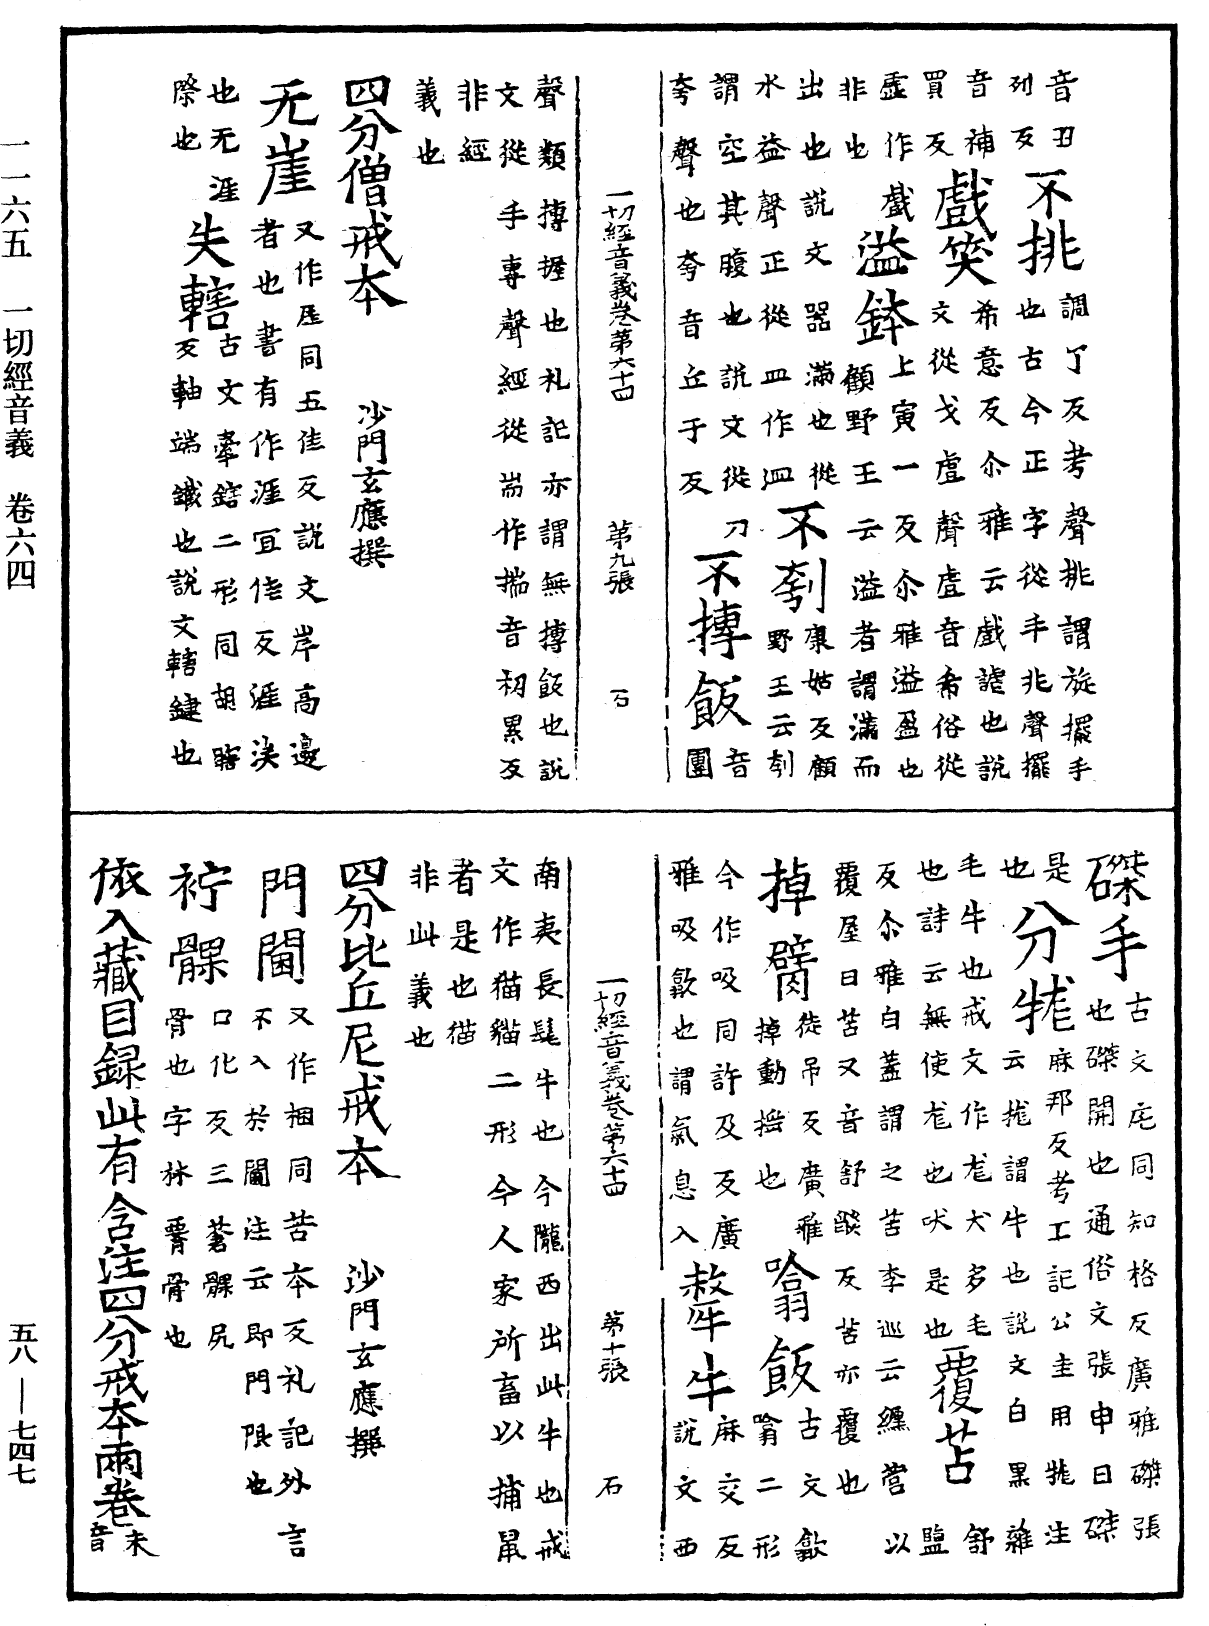 音丑列反不挑調了反考聲挑謂旋擺手
也古今正字從手兆聲擺
音補買反戲笑希意反尒雅云戲謔也說
文從戈䖒聲䖒音希俗從
虛作戲非也溢鉢上寅一反尒雅溢盈也
顧野王云溢者謂滿而
出也說文器滿也從水益聲正從皿作㿽不刳康姑反顧
野王云刳
謂空其腹也說文從刀夸聲也夸音丘于反不摶飯音團
一切經音義卷第六十四 第九張 石
聲類摶握也礼記亦謂無摶飯也說
文從手專聲經從耑作揣音初累反
非經義也
四分僧戒本 沙門玄應撰
无崖又作厓同五佳反說文岸高邊
者也書有作涯宜佳反涯涘
也无涯際也失轄古文舝鎋二形同胡瞎
反軸端鐵也說文轄鍵也
磔手古文厇同知格反廣雅磔張
也磔開也通俗文張申曰磔
是也分牻麻邦反考工記公圭用牻注
云牻謂牛也說文白黑雜
毛牛也戒文作尨犬多毛
也詩云無使尨也吠是也覆苫舒鹽
反尒雅白蓋謂之苫李巡云纏菅以
覆屋曰苫又音舒焰反苫亦覆也
掉臂徒吊反廣雅
掉動搖也噏飯古文歙噏二形
今作吸同許及反廣雅吸歙也謂氣息入犛牛麻交反
說文西
一切經音義卷第六十四 第十張 石
南夷長髦牛也今隴西出此牛也戒
文作猫貓二形今人家所畜以捕鼠
者是也猫非此義也
四分比丘尼戒本 沙門玄應撰
門閫又作梱同苦本反礼記外言
不入於閫注云即門限也
䯊髁口化反三蒼髁尻
骨也字林䯊骨也
依入藏目録此有含注四分戒本兩卷未音
一一六五 一切經音義 卷六四
五八—七四七